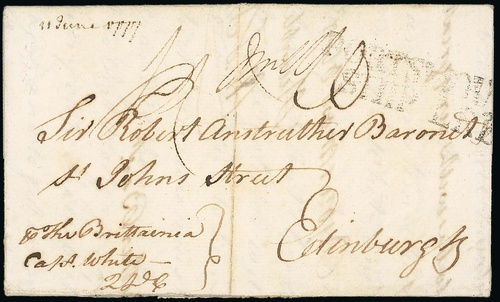 11 June 1777
Sir Robert Anstruther Baronet
St Johns Street
Edinburgh
The Brittainia
Capt. White
SHIP